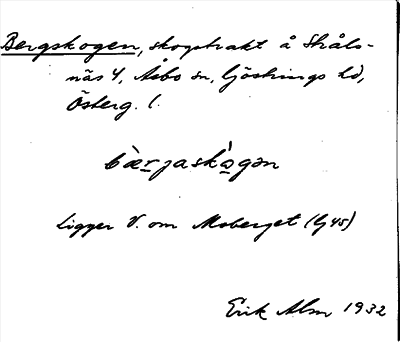 Bergskogen, skogstrakt å Stråls-
näs 4, Åsbo sn, Göstrings hd,
Österg. l.
bæ̀rjaskò̱gən
Ligger V. om Moberget (G 45)
Erik Alm 1932